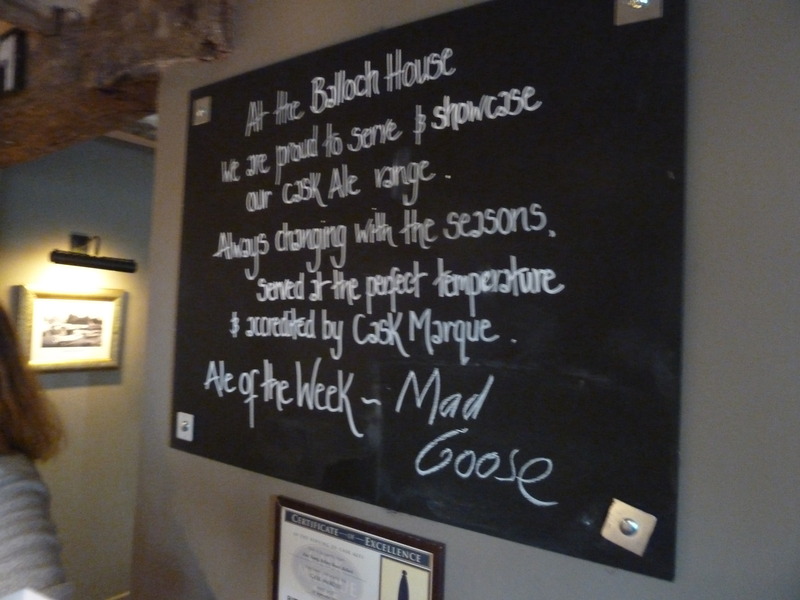 At the Balloch House
we are proud to serve & showcase
our Cask Ale range.
Always changing with the seasons.
Served at the perfect temperature
& accredited by Cask Marque.
Ale of the Week ~ Mad
Goose
CERTIFICATE OF EXCELLENCE